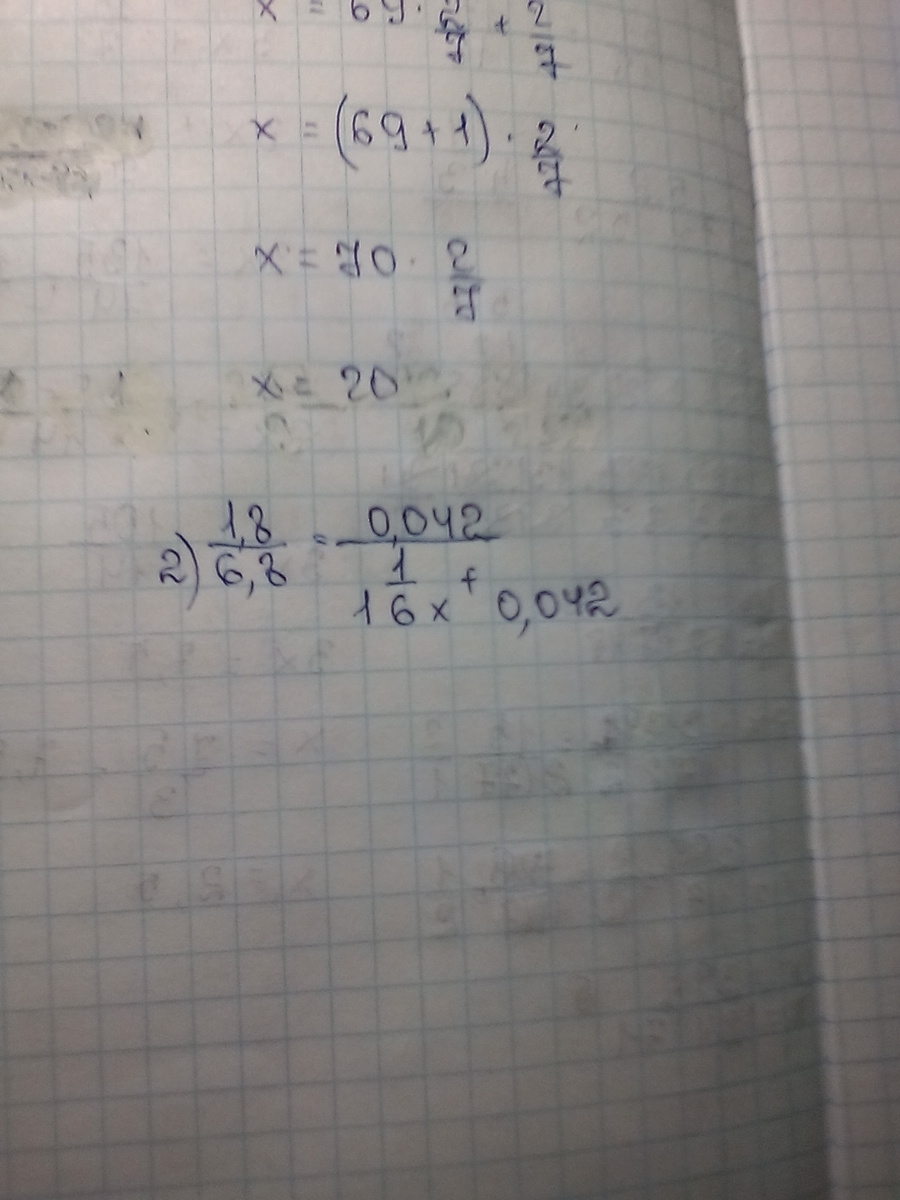 x = 69 · 2/7 + 2/7
x = (69 + 1) · 2/7
x = 70 · 2/7
x = 20
2) 1,8/6,8 = 0,042/(1/16 x + 0,042)